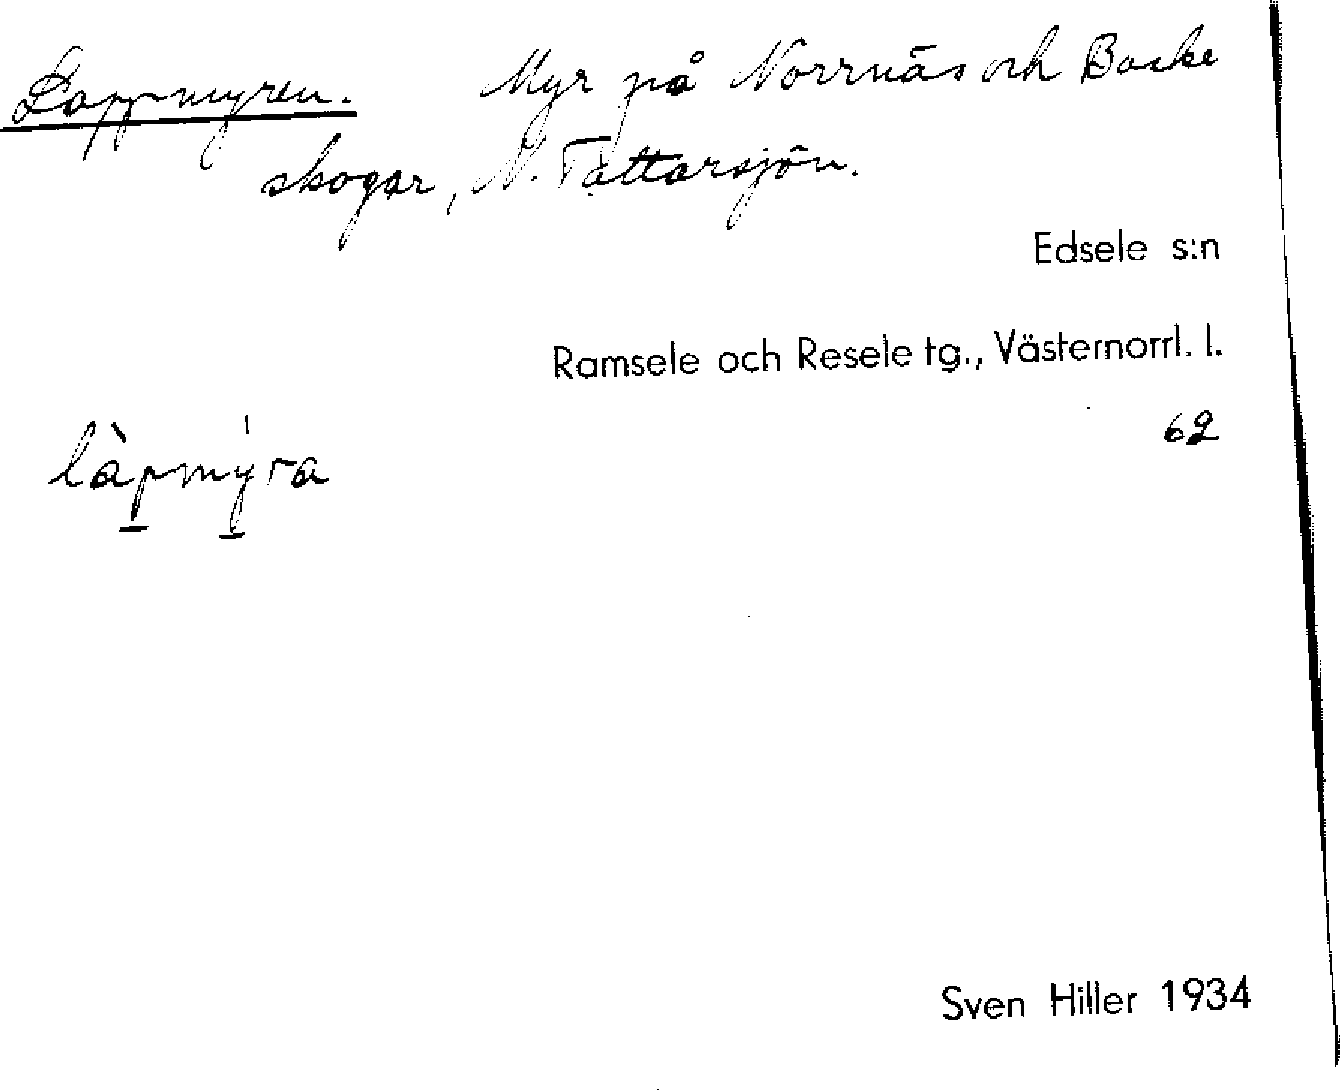 Lappmyren. Myr på Norrnäs och Backe
skogar, N. Tattarsjön.
Edsele s:n
Ramsele och Resele tg., Västernorrl. l.
62
làpmyra
Sven Hiller 1934